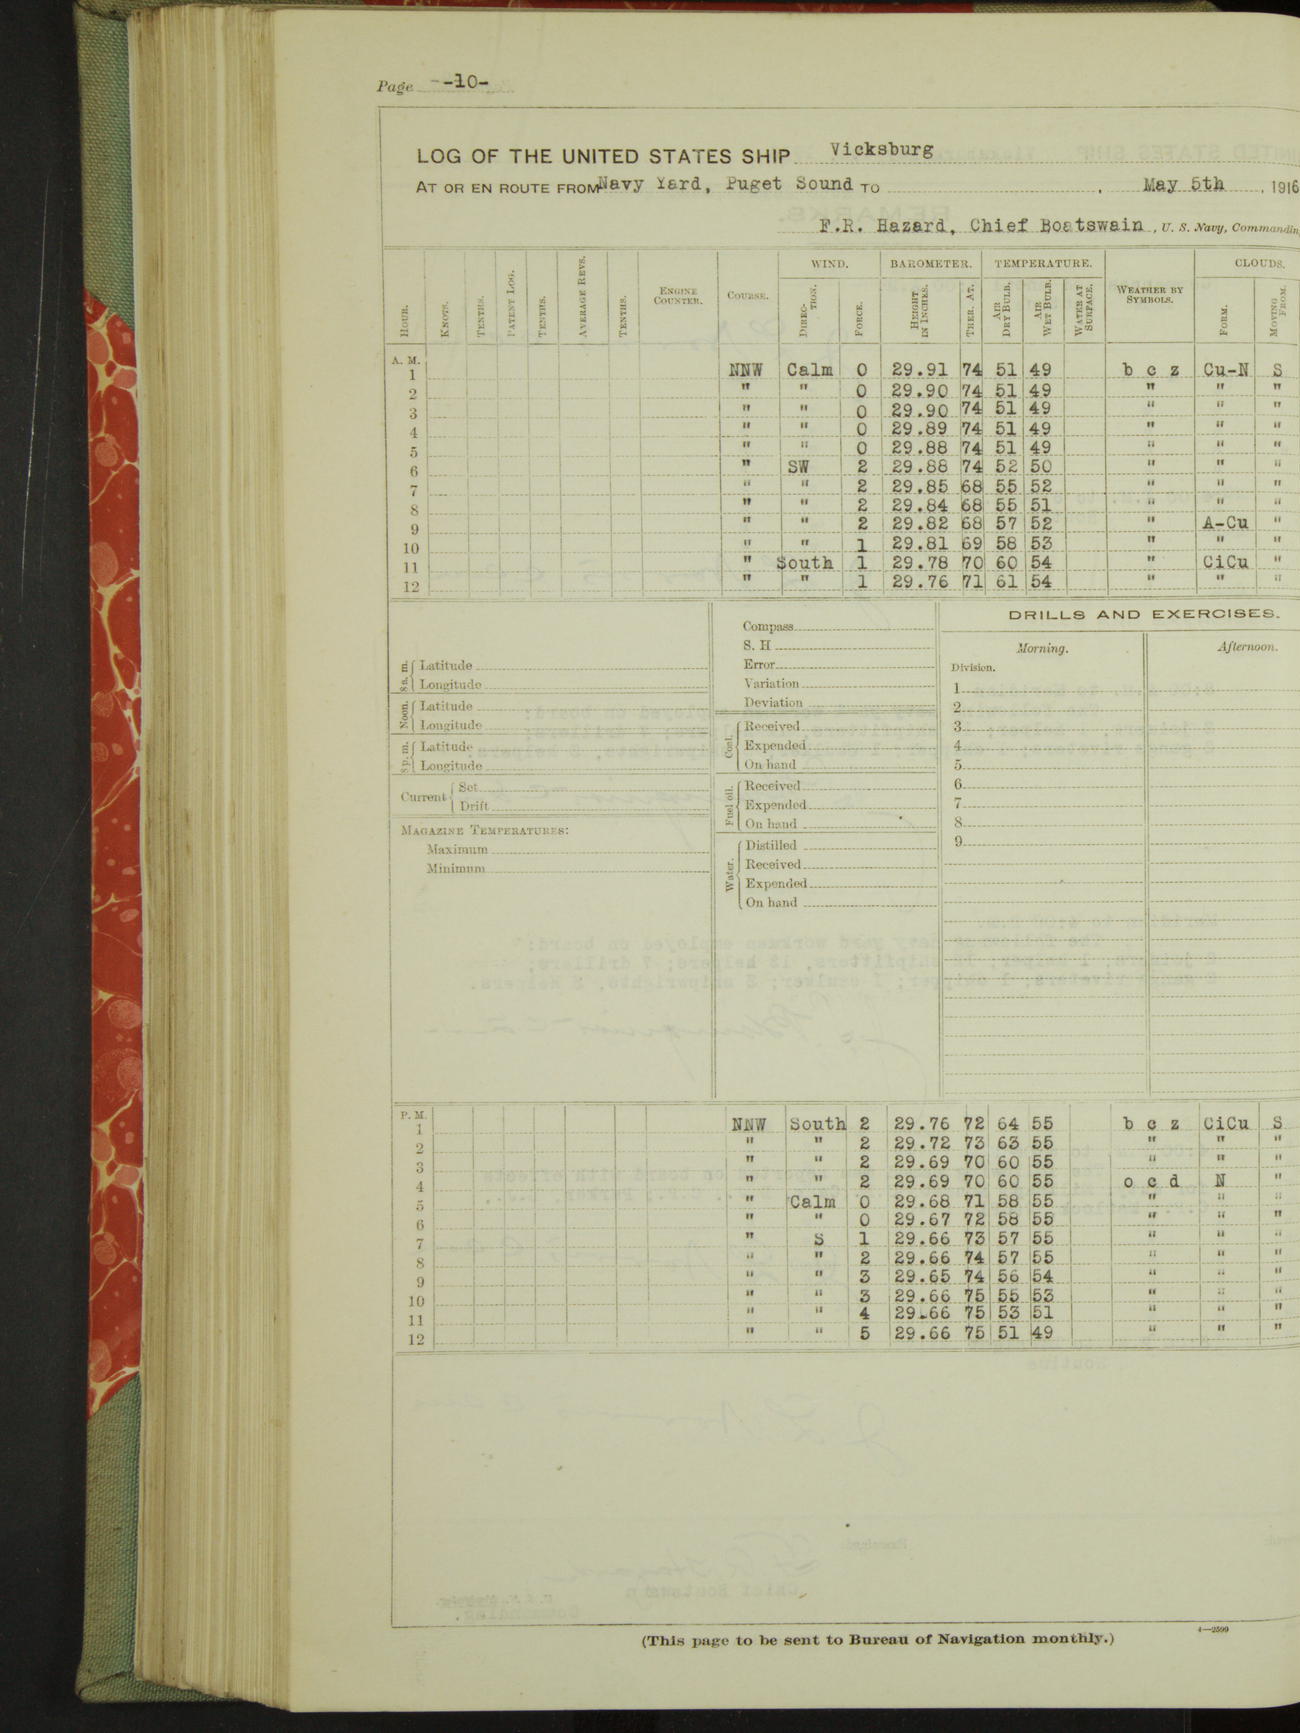 Page -10-
LOG OF THE UNITED STATES SHIP Vicksburg
AT OR EN ROUTE FROM Navy Yard, Puget Sound TO , May 5th , 1916
F.R. Hazard, Chief Boatswain , U. S. Navy, Commandin
WIND. BAROMETER. TEMPERATURE. CLOUDS.
HOUR. KNOTS. TENTHS. PATENT LOG. TENTHS. AVERAGE REVS. TENTHS. ENGINE COUNTER. COURSE. DIREC-TION. FORCE. HEIGHT IN INCHES. THER. AT. AIR DRY BULB. AIR WET BULB. WATER AT SURFACE. WEATHER BY SYMBOLS. FORM. MOVING FROM.
A. M.
1 NNW Calm 0 29.91 74 51 49 b c z Cu-N S
2 " " 0 29.90 74 51 49 " " "
3 " " 0 29.90 74 51 49 " " "
4 " " 0 29.89 74 51 49 " " "
5 " " 0 29.88 74 51 49 " " "
6 " SW 2 29.88 74 52 50 " " "
7 " " 2 29.85 68 55 52 " " "
8 " " 2 29.84 68 55 51 " " "
9 " " 2 29.82 68 57 52 " A-Cu "
10 " " 1 29.81 69 58 53 " " "
11 " South 1 29.78 70 60 54 " CiCu "
12 " " 1 29.76 71 61 54 " " "
8 a. m. Latitude
Longitude
Noon. Latitude
Longitude
8 p. m. Latitude
Longitude
Current Set
Drift
MAGAZINE TEMPERATURES:
Maximum
Minimum
Compass
S. H
Error
Variation
Deviation
Coal. Received
Expended
On hand
Fuel oil. Received
Expended
On hand
Water. Distilled
Received
Expended
On hand
DRILLS AND EXERCISES.
Morning. Afternoon.
Division.
1
2
3
4
5
6
7
8
9
P. M.
1 NNW South 2 29.76 72 64 55 b c z CiCu S
2 " " 2 29.72 73 63 55 " " "
3 " " 2 29.69 70 60 55 " " "
4 " " 2 29.69 70 60 55 o c d N "
5 " Calm 0 29.68 71 58 55 " " "
6 " " 0 29.67 72 58 55 " " "
7 " S 1 29.66 73 57 55 " " "
8 " " 2 29.66 74 57 55 " " "
9 " " 3 29.65 74 56 54 " " "
10 " " 3 29.66 75 55 53 " " "
11 " " 4 29.66 75 53 51 " " "
12 " " 5 29.66 75 51 49 " " "
(This page to be sent to Bureau of Navigation monthly.)
4—2599